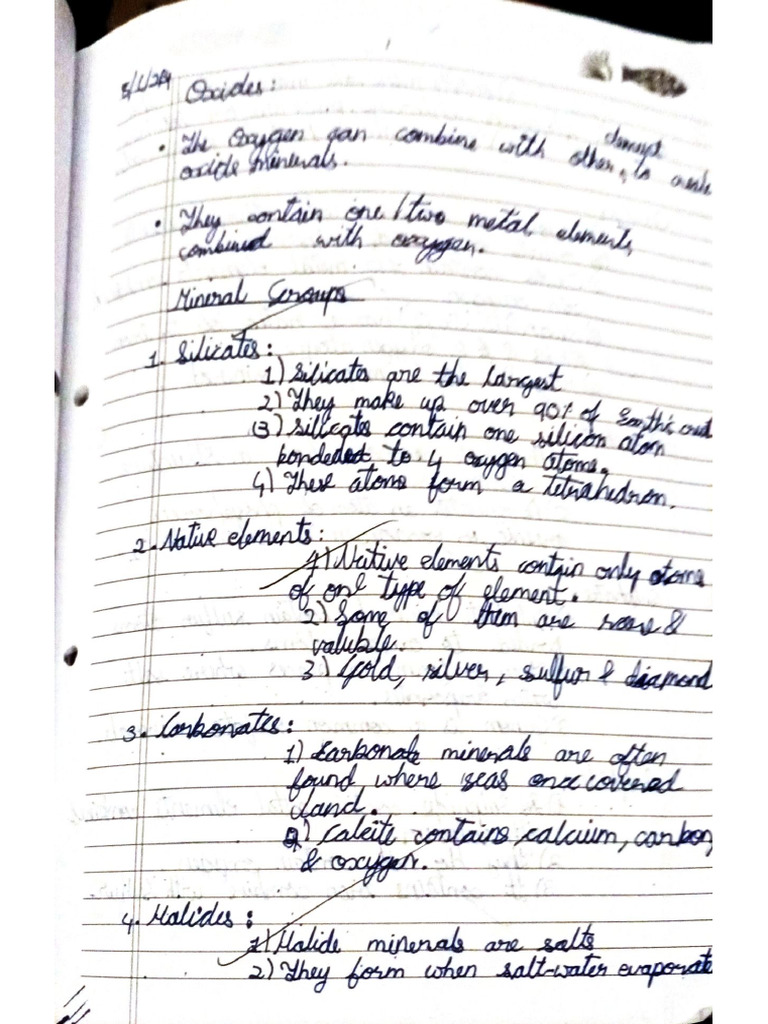 Oxides:
• The Oxygen can combine with other element to
oxide minerals.
• They contain one/two metal elements
combined with oxygen.
Mineral Groups
1. Silicates:
1) Silicates are the largest
2) They make up over 90% of Earth's crust
3) Silicates contain one silicon atom
bonded to 4 oxygen atoms.
4) These atoms form a tetrahedron.
2. Native elements:
1) Native elements contain only atoms
of one type of element.
2) Some of them are rare &
valuble.
3) Gold, silver, sulfur & diamond
3. Carbonates:
1) Carbonate minerals are often
found where seas once covered
land.
2) Calcite contains calcium, carbon,
& oxygen.
4. Halides:
1) Halide minerals are salts
2) They form when salt-water evaporate